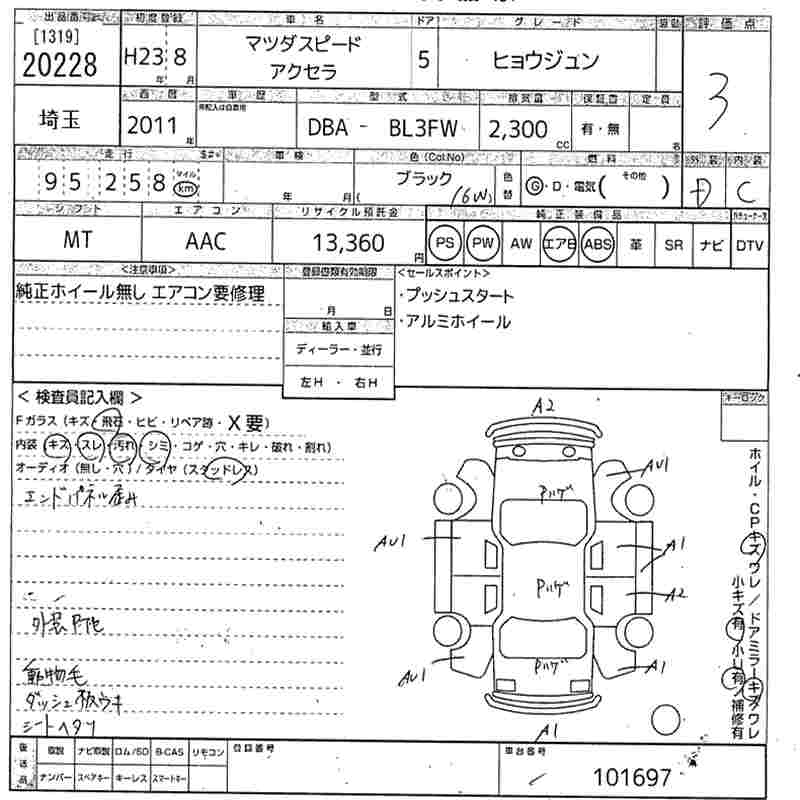 出品番号 初度登録 車名 ドア グレード 評価点
[1319]
20228 H23 8 マツダスピード アクセラ 5 ヒョウジュン 3
年 月
西暦 車歴 型式 排気量 保証書 定員
埼玉 2011 年 DBA - BL3FW 2,300 CC 有・無 名
走行 車検 色(Col.No) 燃料 外装 内装
95,258 マイル km 年 月 ブラック (16W) 色替 G・D・電気 ( その他 ) D C
シフト エアコン リサイクル預託金 純正装備品
MT AAC 13,360 円 PS PW AW エアB ABS 革 SR ナビ DTV
<注意事項> 登録書類有効期限 <セールスポイント>
純正ホイール無し エアコン要修理
月 日
・プッシュスタート
・アルミホイール
輸入車
ディーラー・並行
左H ・ 右H
<検査員記入欄>
Fガラス (キズ・飛石・ヒビ・リペア跡・X要)
内装 (キズ・スレ・汚れ・シミ・コゲ・穴・キレ・破れ・割れ)
オーディオ (無し・穴) / タイヤ (スタッドレス)
エンドパネル歪み
外装下色
動物毛
ダッシュ板ウキ
シートヘタリ
A2
AU1
Pハゲ
AU1
A1
Pハゲ
A2
Pハゲ
AU1
A1
A1
キーロック
ホイル・CPキズワレ/ドアミラーキズワレ
小キズ有・小U有/補修有
後送品 取説 ナビ取説 ロム/SD B-CAS リモコン 登録番号 車台番号
ナンバー スペアキー キーレス スマートキー 101697